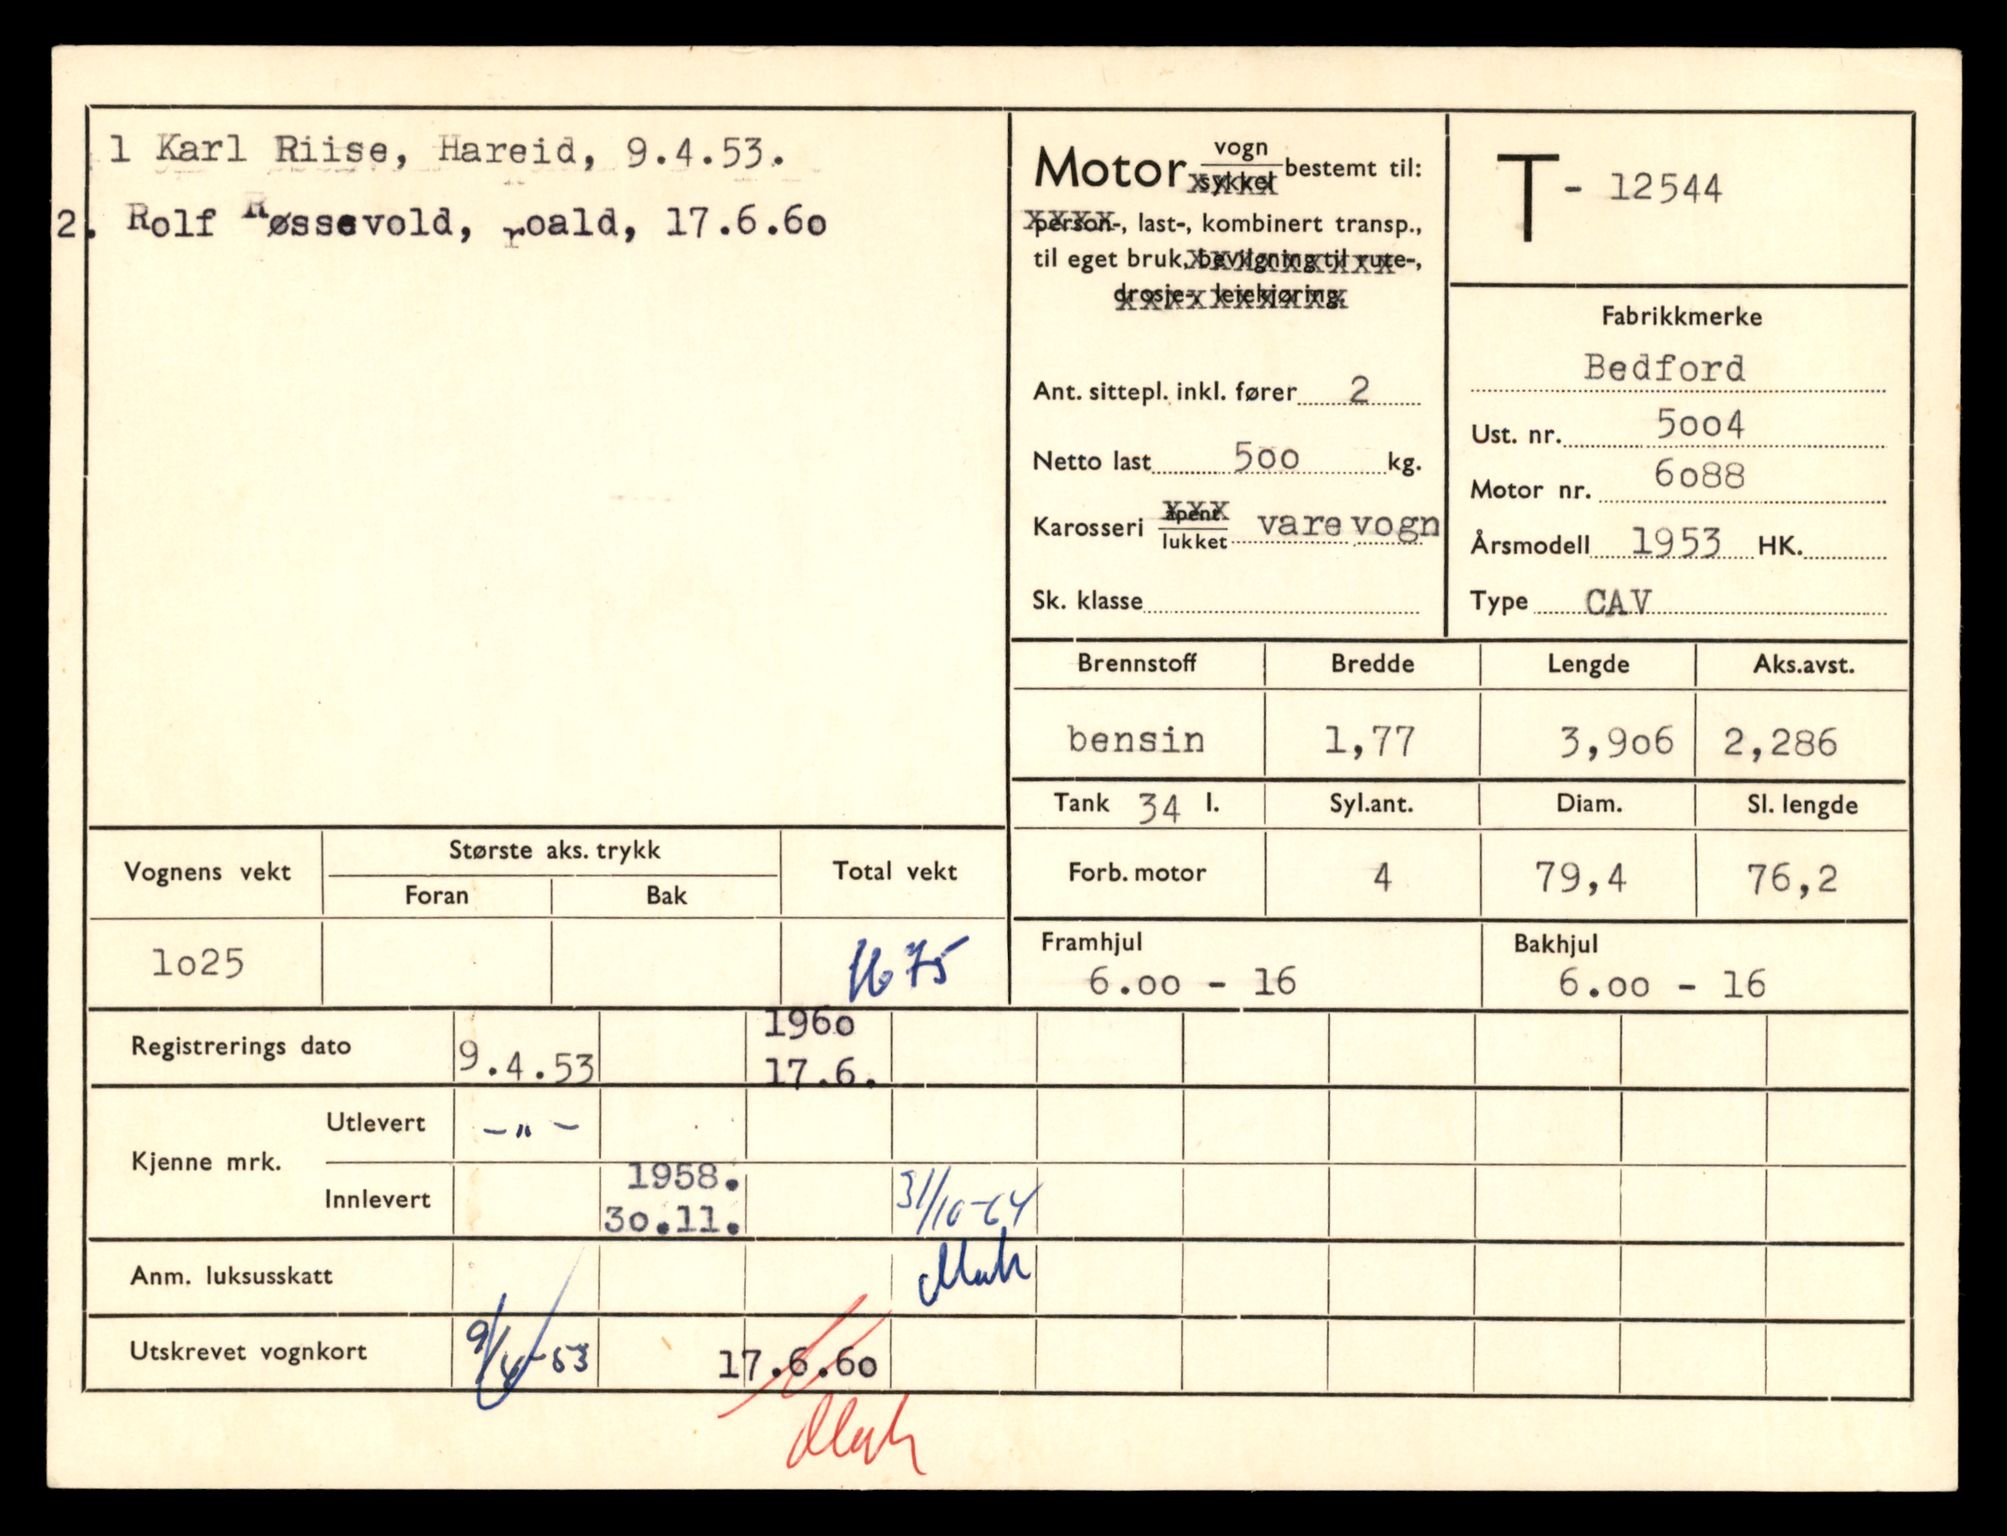 1 Karl Riise, Hareid, 9.4.53.
2. Rolf Røssevold, roald, 17.6.6o
Motor vogn sykkel bestemt til:
person-, last-, kombinert transp.,
til eget bruk, bevilgning til rute-,
drosje-, leiekjøring.
Ant. sittepl. inkl. fører 2
Netto last 5oo kg.
Karosseri åpent lukket varevogn
Sk. klasse
T - 12544
Fabrikkmerke
Bedford
Ust. nr. 5oo4
Motor nr. 6o88
Årsmodell 1953 HK.
Type CAV
Brennstoff Bredde Lengde Aks.avst.
bensin 1,77 3,9o6 2,286
Tank 34 l. Syl.ant. Diam. Sl. lengde
Forb. motor 4 79,4 76,2
Framhjul Bakhjul
6.oo - 16 6.oo - 16
Vognens vekt Største aks. trykk Total vekt
Foran Bak
1o25 1675
Registrerings dato 9.4.53 196o 17.6.
Kjenne mrk. Utlevert -"-
Innlevert 1958. 3o.11. 31/10-64
Anm. luksusskatt
Utskrevet vognkort 9/4-53 17.6.6o